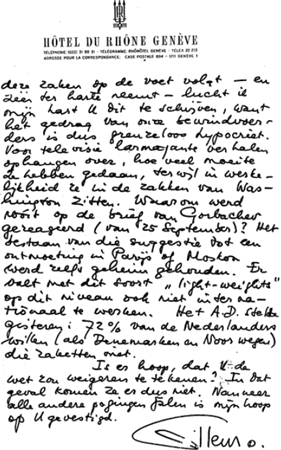 HÔTEL DU RHÔNE GENÈVE
deze zaken op de voet volgt – en
zéér ter harte neemt – lucht ik
mijn hart U dit te schrijven, want
het gedrag van onze bewindvoer-
ders is dus grenzeloos hypocriet.
Voor televisie larmoyante verhalen
ophangen over, hoe veel moeite
ze hebben gedaan, terwijl in werke-
lijkheid ze in de zakken van Was-
hington zitten. Waarom werd
nooit op de brief van Gorbachev
gereageerd (van 25 September)? Het
bestaan van die suggestie tot een
ontmoeting in Parijs of Moskou
werd zelfs geheim gehouden. Er
valt met dit soort "light-weights"
op dit niveau ook niet interna-
tionaal te werken. Het A.D. stelde
gisteren: 72% van de Nederlanders
willen (als Denemarken en Noorwegen)
die raketten niet.
Is er hoop, dat U de
wet zou weigeren te tekenen? In dat
geval komen ze er dus niet. Wanneer
alle andere pogingen falen is mijn hoop
op U gevestigd.
Willem O.